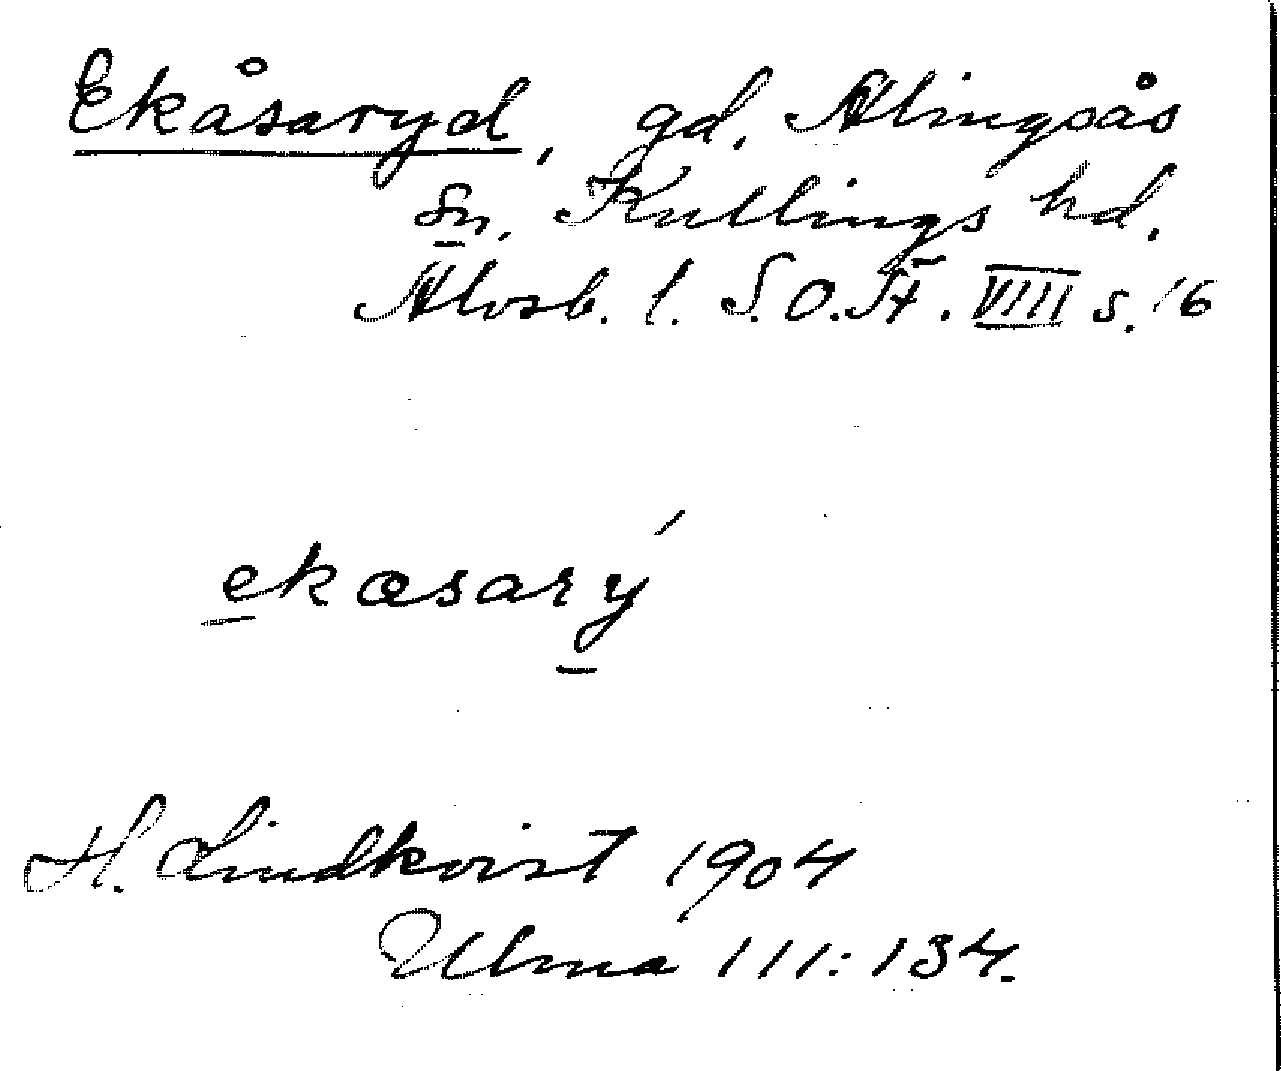 Ekåsaryd, gd, Alingsås
sn, Kullings hd.
Älvsb. l. S.O.Ä. VIII s. 16
ekœsarý
H. Lindkvist 1904
Ulma 111:134.